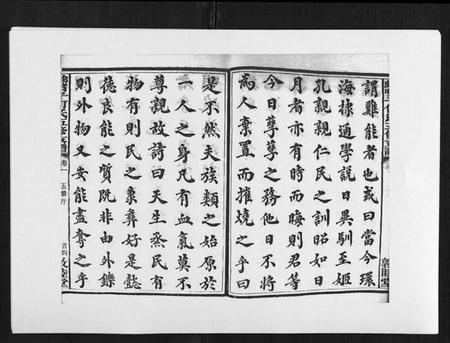 謂難能者也或曰當今環
海棣通學說日異馴至姬
孔親親仁民之訓昭如日
月者亦有時而晦則君等
今日孳孳之務他日不將
為人棄置而摧燒之乎曰
是不然夫族類之始原於
一人之身凡有血氣莫不
尊親故詩曰天生烝民有
物有則民之秉彝好是懿
德良能之質既非由外鑠
則外物又安能盡奪之乎
卷一
五修序
敦睦堂